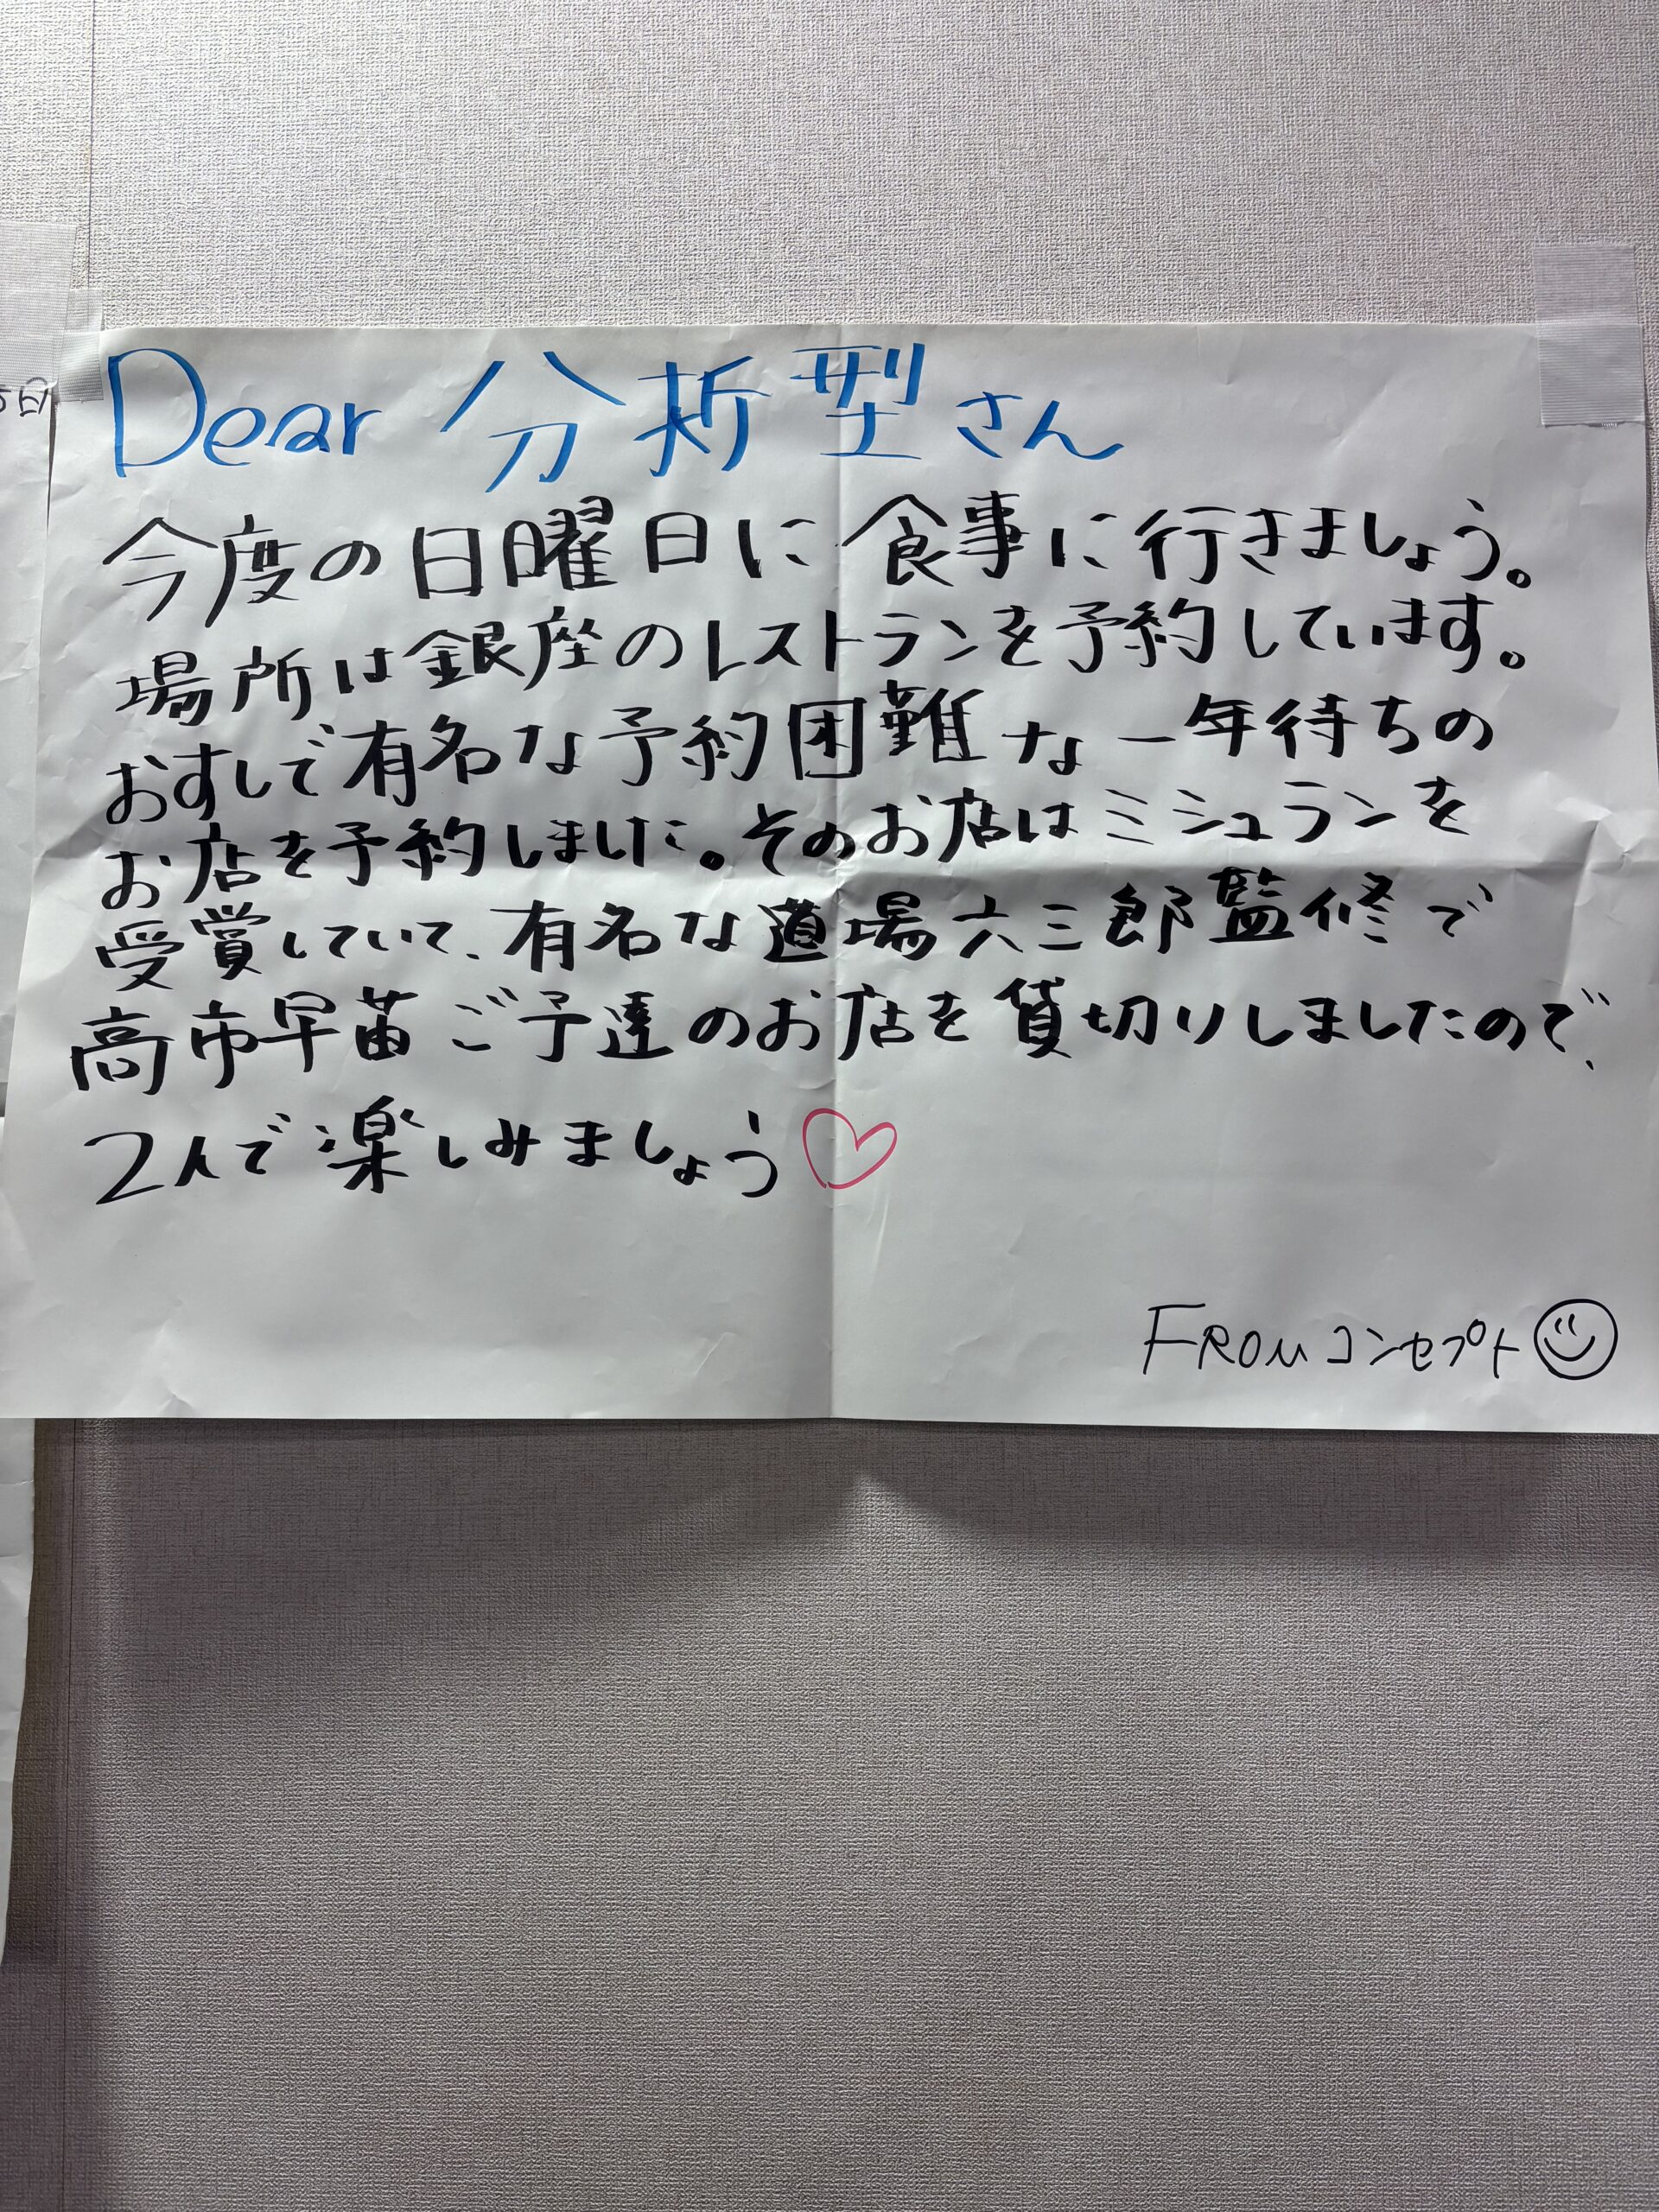 Dear 分析型さん
今度の日曜日に食事に行きましょう。
場所は銀座のレストランを予約しています。
おすしで有名な予約困難な一年待ちの
お店を予約しました。そのお店はミシュランを
受賞していて、有名な道場六三郎監修で
高市早苗ご予達のお店を貸切りしましたので、
2人で楽しみましょう♡
FROM コンセプト